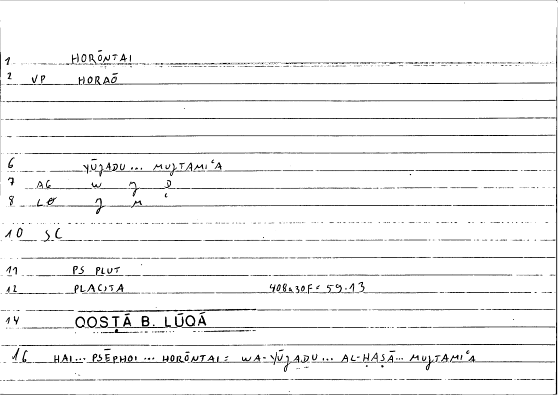 1 HORŌNTAI
2 VP HORAŌ
6 YŪJADU... MUJTAMIʿA
7 AG W J D
8 LO J M ʿ
10 SC
11 PS PLUT
12 PLACITA 408a30F = 59.13
14 QOSṬĀ B. LŪQĀ
16 HAI... PSĒPHOI... HORŌNTAI = WA-YŪJADU... AL-ḤAṢĀ... MUJTAMIʿA